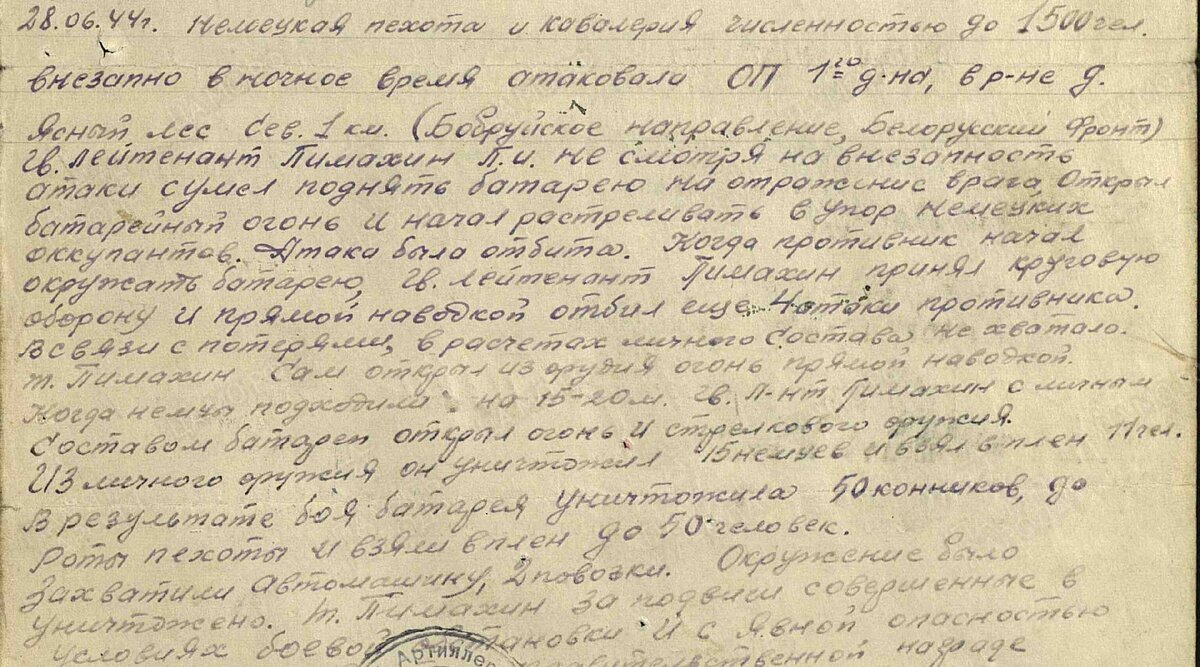 28.06.44г. Немецкая пехота и кавалерия численностью до 1500 чел.
внезапно в ночное время атаковали ОП 1го д-на, в р-не д.
Ясный лес сев. 1 км. (Бобруйское направление, Белорусский Фронт)
Гв. лейтенант Пимахин П.И. не смотря на внезапность
атаки сумел поднять батарею на отражение врага, Открыл
батарейный огонь и начал растреливать в упор немецких
оккупантов. Атака была отбита. Когда противник начал
окружать батарею, гв. лейтенант Пимахин принял круговую
оборону и прямой наводкой отбил еще 4 атаки противника.
В связи с потерями, в расчетах личного состава не хватало.
т. Пимахин сам открыл из орудия огонь прямой наводкой.
Когда немцы подходили на 15-20м. гв. л-нт Пимахин с личным
составом батареи открыл огонь и стрелкового оружия.
Из личного оружия он уничтожил 15 немцев и взял в плен 11 чел.
В результате боя батарея уничтожила 50 конников, до
роты пехоты и взяли в плен до 50 человек.
Захватили автомашину, 2 повозки. Окружение было
уничтожено. т. Пимахин за подвиги совершенные в
условиях боевой обстановки и с явной опасностью
Артиллер правительственной награде